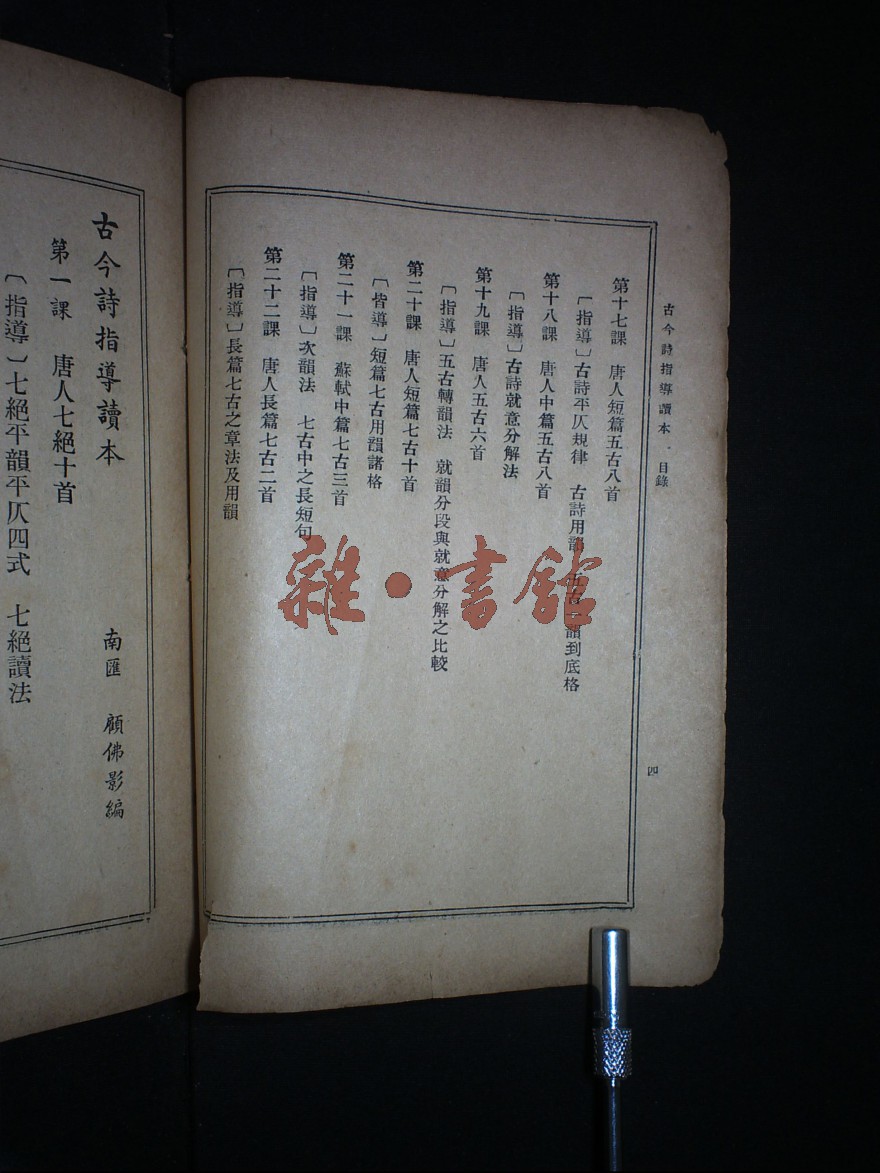 古今詩指導讀本 · 目錄
四
第十七課 唐人短篇五古八首
〔指導〕古詩平仄規律 古詩用韻 五古一韻到底格
第十八課 唐人中篇五古八首
〔指導〕古詩就意分解法
第十九課 唐人五古六首
〔指導〕五古轉韻法 就韻分段與就意分解之比較
第二十課 唐人短篇七古十首
〔皆導〕短篇七古用韻諸格
第二十一課 蘇軾中篇七古三首
〔指導〕次韻法 七古中之長短句
第二十二課 唐人長篇七古二首
〔指導〕長篇七古之章法及用韻
古今詩指導讀本
南匯 顧佛影編
第一課 唐人七絕十首
〔指導〕七絕平韻平仄四式 七絕讀法
雜·書館